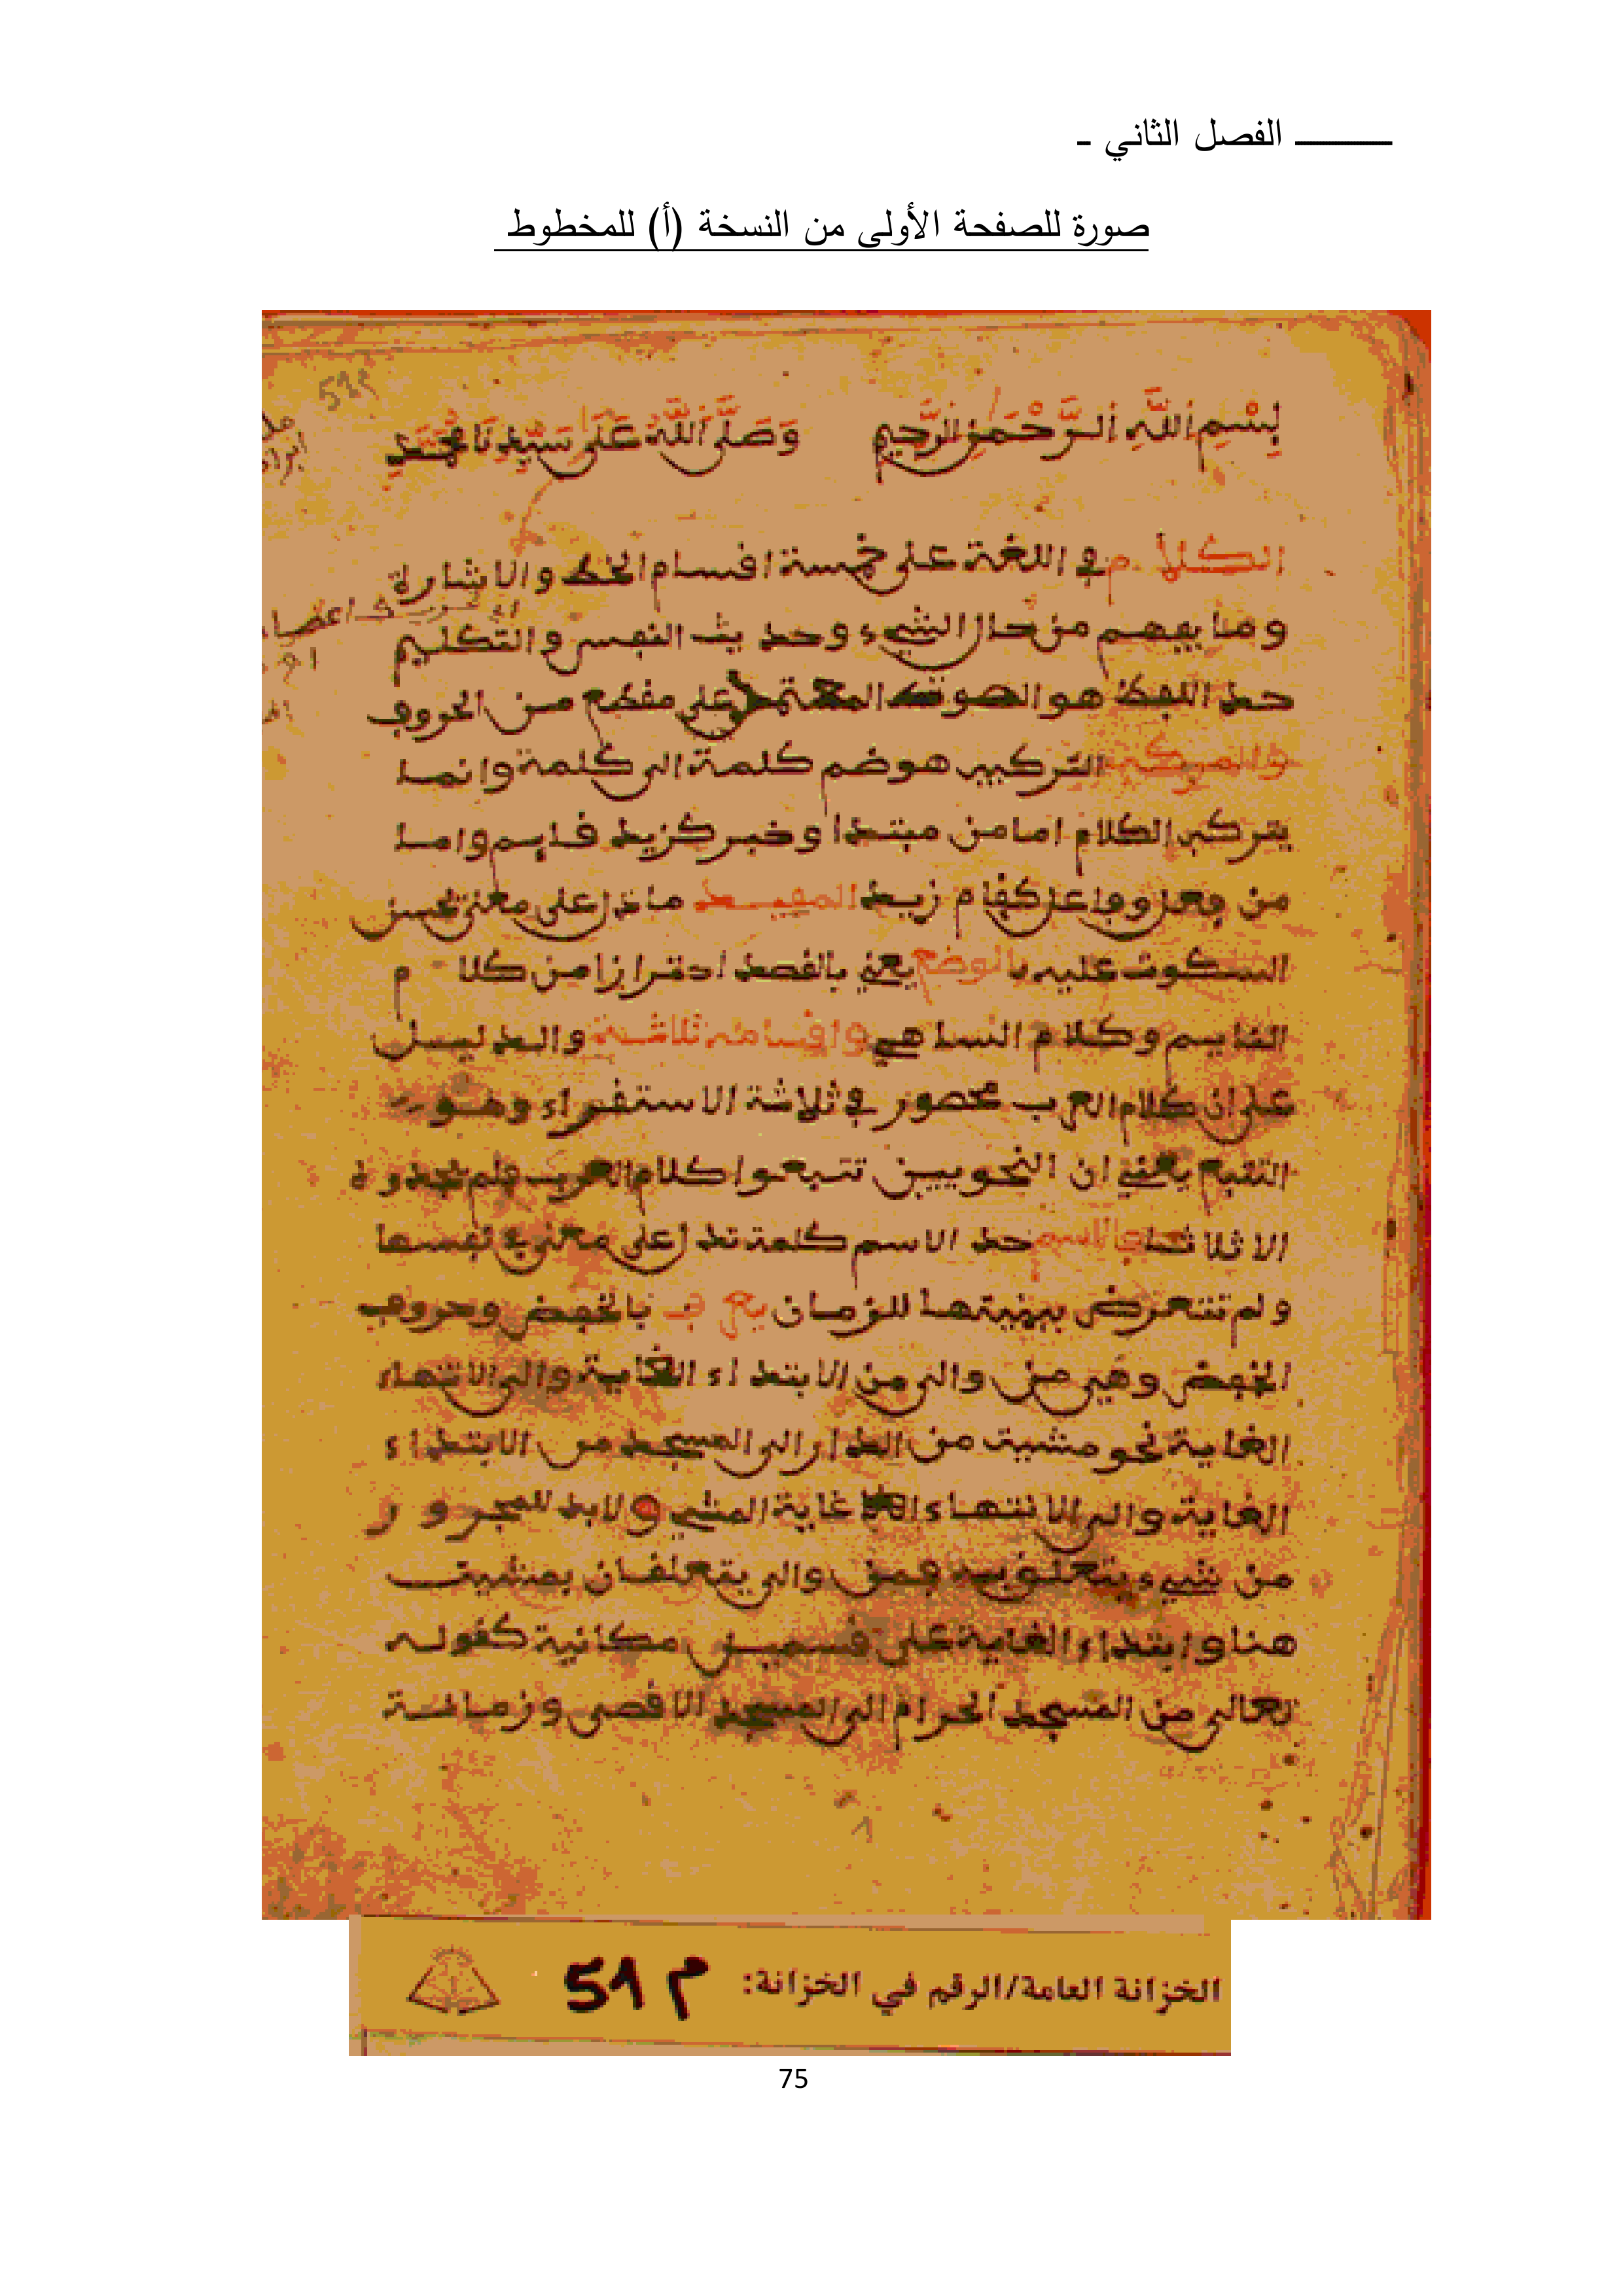 الفصل الثاني -
صورة للصفحة الأولى من النسخة (أ) للمخطوط
529
بِسْمِ اللَّهِ الرَّحْمَنِ الرَّحِيمِ وَصَلَّى اللَّهُ عَلَى سَيِّدِنَا مُحَمَّدٍ
الكلام في اللغة على خمسة اقسام الخط والاشارة
وما يفهم من حال الشيء وحديث النفس والتكليم
حد اللفظ هو الصوت المعتمد على مقطع من الحروف
والمركب التركيب هو ضم كلمة الى كلمة وانما
يتركب الكلام اما من مبتدا وخبر كزيد قايم واما
من فعل وفاعل كقام زيد المفيد ما دل على معنى يحسن
السكوت عليه بالوضع يعني بالقصد احترازا من كلام
النايم وكلام الساهي واقسامه ثلاثة والدليل
على ان كلام العرب محصور في ثلاثة الاستقراء وهو
التتبع يعني ان النحويين تتبعوا كلام العرب فلم يجدوه
الا ثلاثة فالاسم حد الاسم كلمة تدل على معنى في نفسها
ولم تتعرض ببنيتها للزمان يعرف بالخفض وحروف
الخفض وهي من والى من الابتداء الغاية والى الانتهاء
الغاية نحو مشيت من الدار الى المسجد من الابتداء
الغاية والى الانتهاء غاية المشي ولابد للمجرور
من شيء يتعلق به فمن والى يتعلقان بمشيت
هنا وابتداء الغاية على قسمين مكانية كقوله
تعالى من المسجد الحرام الى المسجد الاقصى وزمانية
الخزانة العامة/الرقم في الخزانة: م 51
75